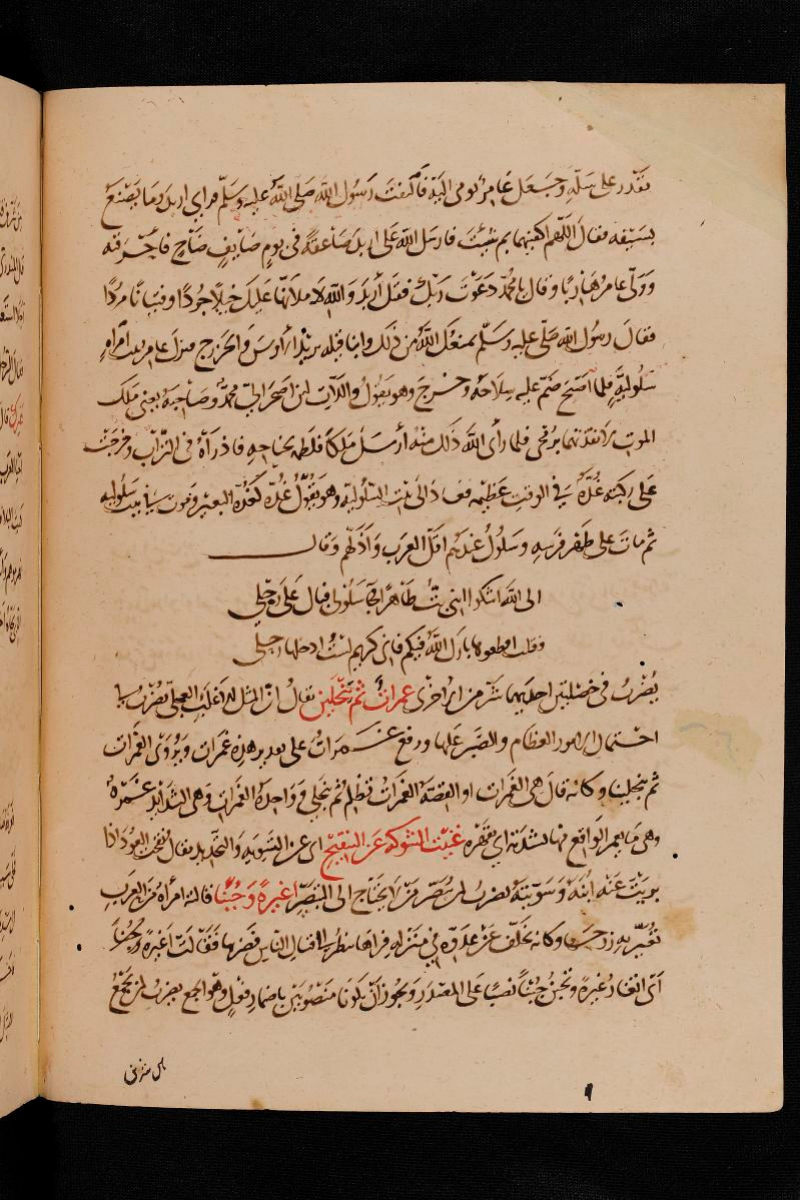 يقدر على سله وجعل عامر يومى اليه فالتفت رسول الله صلى الله عليه وسلم فراى اربد وما يصنع
بسيفه فقال اللهم اكفنيهما بم شئت فارسل الله على اربد صاعقة فى يوم صايف صاح فاحرقته
وولى عامر هاربا وقال يا محمد دعوت ربك فقتل اربد والله لاملانها عليك خيلا جردا وفتيانا مردا
فقال رسول الله صلى عليه وسلم يمنعك الله من ذلك وابنا قيله يريد الاوس والخزرج فنزل عامر بيت امراه
سلولية فلما اصبح ضم عليه سلاحه وخرج وهو يقول واللات لين اصحر الى محمد وصاحبه يعنى ملك
الموت لانفذتهما برمحى فلما راى الله ذلك منه ارسل ملكا فلطمه بجناحه فاذراه فى التراب وخرجت
على ركبته غدة فى الوقت عظيمه فعاد الى بيت السلولية وهو يقول غدة كغدة البعير وموت فى بيت سلوليه
ثم مات على ظهر فرسه وسلول عندهم اقل العرب واذلهم وقال
الى الله اشكوا اننى بت طاهرا فجا سلولى فبال على رجلى
فقلت اقطعوها بارك الله فيكم فانى كريم لست ادخلها رحلى
يضرب فى خصلتين احديهما شر من الاخرى غمرات ثم ينجلين يقال ان المثل للاغلب العجلى يضرب فى
احتمال الامور العظام والصبر عليها ورفع غمرات على تقدير هذه غمرات ويروى الغمرات
ثم ينجلينا وكانه قال هى الغمرات او القصة الغمرات تظلم ثم تنجلى وواحدة الغمرات وهى الشدايد غمرة
وهى ما يغمر الواقع فيها لشدته اى تقهره غنيت الشوكة عن التنقيح اى عن التسويه والتحديد يقال نقحت العود اذا
بريت عنه ابنه وسويته يضرب لمن يبصر من لا يحتاج الى التبصر اغيرة وجبنا قالته امراة من العرب
تعير به زوجها وكان تخلف عن عدوه فى منزله فراها تنظر الى قتال الناس فضربها فقالت اغيرة وجبنا
اى اتغار غيرة وتجبن جبنا نصبا على المصدر ويجوز ان يكونا منصوبين باضمار فعل وهو اتجمع يضرب لمن يجمع